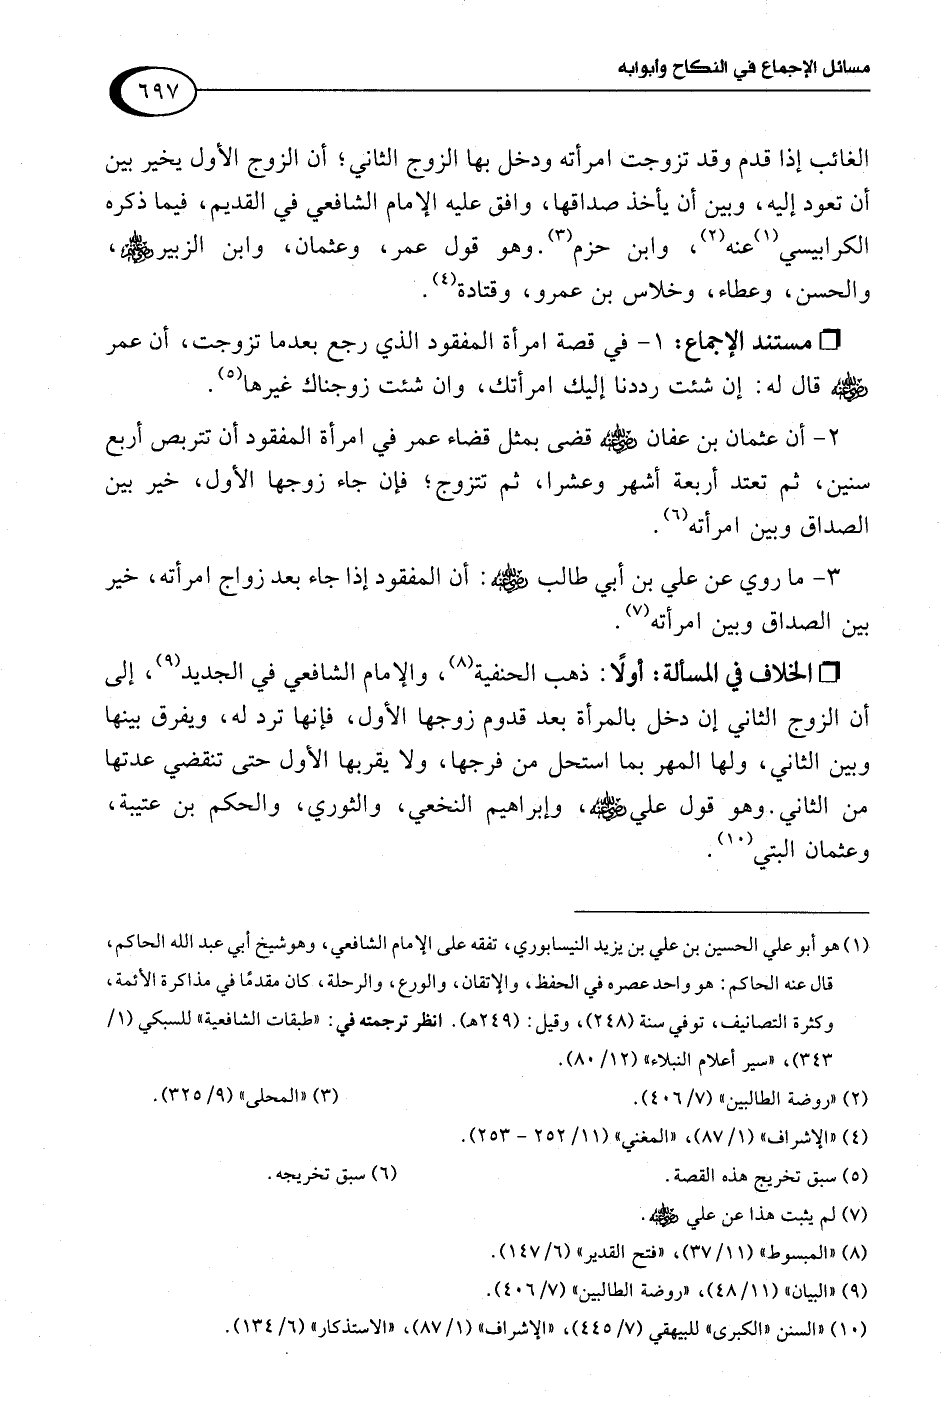 مسائل الإجماع في النكاح وأبوابه
٦٩٧
الغائب إذا قدم وقد تزوجت امرأته ودخل بها الزوج الثاني؛ أن الزوج الأول يخير بين
أن تعود إليه، وبين أن يأخذ صداقها، وافق عليه الإمام الشافعي في القديم، فيما ذكره
الكرابيسي(١) عنه(٢)، وابن حزم(٣). وهو قول عمر، وعثمان، وابن الزبير ﷺ،
والحسن، وعطاء، وخلاس بن عمرو، وقتادة(٤).
❏ مستند الإجماع: ١- في قصة امرأة المفقود الذي رجع بعدما تزوجت، أن عمر
قال له: إن شئت رددنا إليك امرأتك، وان شئت زوجناك غيرها(٥).
٢- أن عثمان بن عفان قضى بمثل قضاء عمر في امرأة المفقود أن تتربص أربع
سنين، ثم تعتد أربعة أشهر وعشرا، ثم تتزوج؛ فإن جاء زوجها الأول، خير بين
الصداق وبين امرأته(٦).
٣- ما روي عن علي بن أبي طالب : أن المفقود إذا جاء بعد زواج امرأته، خير
بين الصداق وبين امرأته(٧).
❏ الخلاف في المسألة: أولًا: ذهب الحنفية(٨)، والإمام الشافعي في الجديد(٩)، إلى
أن الزوج الثاني إن دخل بالمرأة بعد قدوم زوجها الأول، فإنها ترد له، ويفرق بينها
وبين الثاني، ولها المهر بما استحل من فرجها، ولا يقربها الأول حتى تنقضي عدتها
من الثاني. وهو قول علي ، وإبراهيم النخعي، والثوري، والحكم بن عتيبة،
وعثمان البتي(١٠).
(١) هو أبو علي الحسين بن علي بن يزيد النيسابوري، تفقه على الإمام الشافعي، وهو شيخ أبي عبد الله الحاكم،
قال عنه الحاكم: هو واحد عصره في الحفظ، والإتقان، والورع، والرحلة، كان مقدمًا في مذاكرة الأئمة،
وكثرة التصانيف، توفي سنة (٢٤٨)، وقيل: (٢٤٩هـ). انظر ترجمته في: «طبقات الشافعية» للسبكي (١/
٣٤٣)، «سير أعلام النبلاء» (١٢/ ٨٠).
(٢) «روضة الطالبين» (٧/ ٤٠٦). (٣) «المحلى» (٩/ ٣٢٥).
(٤) «الإشراف» (١/ ٨٧)، «المغني» (١١/ ٢٥٢ - ٢٥٣).
(٥) سبق تخريج هذه القصة. (٦) سبق تخريجه.
(٧) لم يثبت هذا عن علي .
(٨) «المبسوط» (١١/ ٣٧)، «فتح القدير» (٦/ ١٤٧).
(٩) «البيان» (١١/ ٤٨)، «روضة الطالبين» (٧/ ٤٠٦).
(١٠) «السنن «الكبرى» للبيهقي (٧/ ٤٤٥)، «الإشراف» (١/ ٨٧)، «الاستذكار» (٦/ ١٣٤).